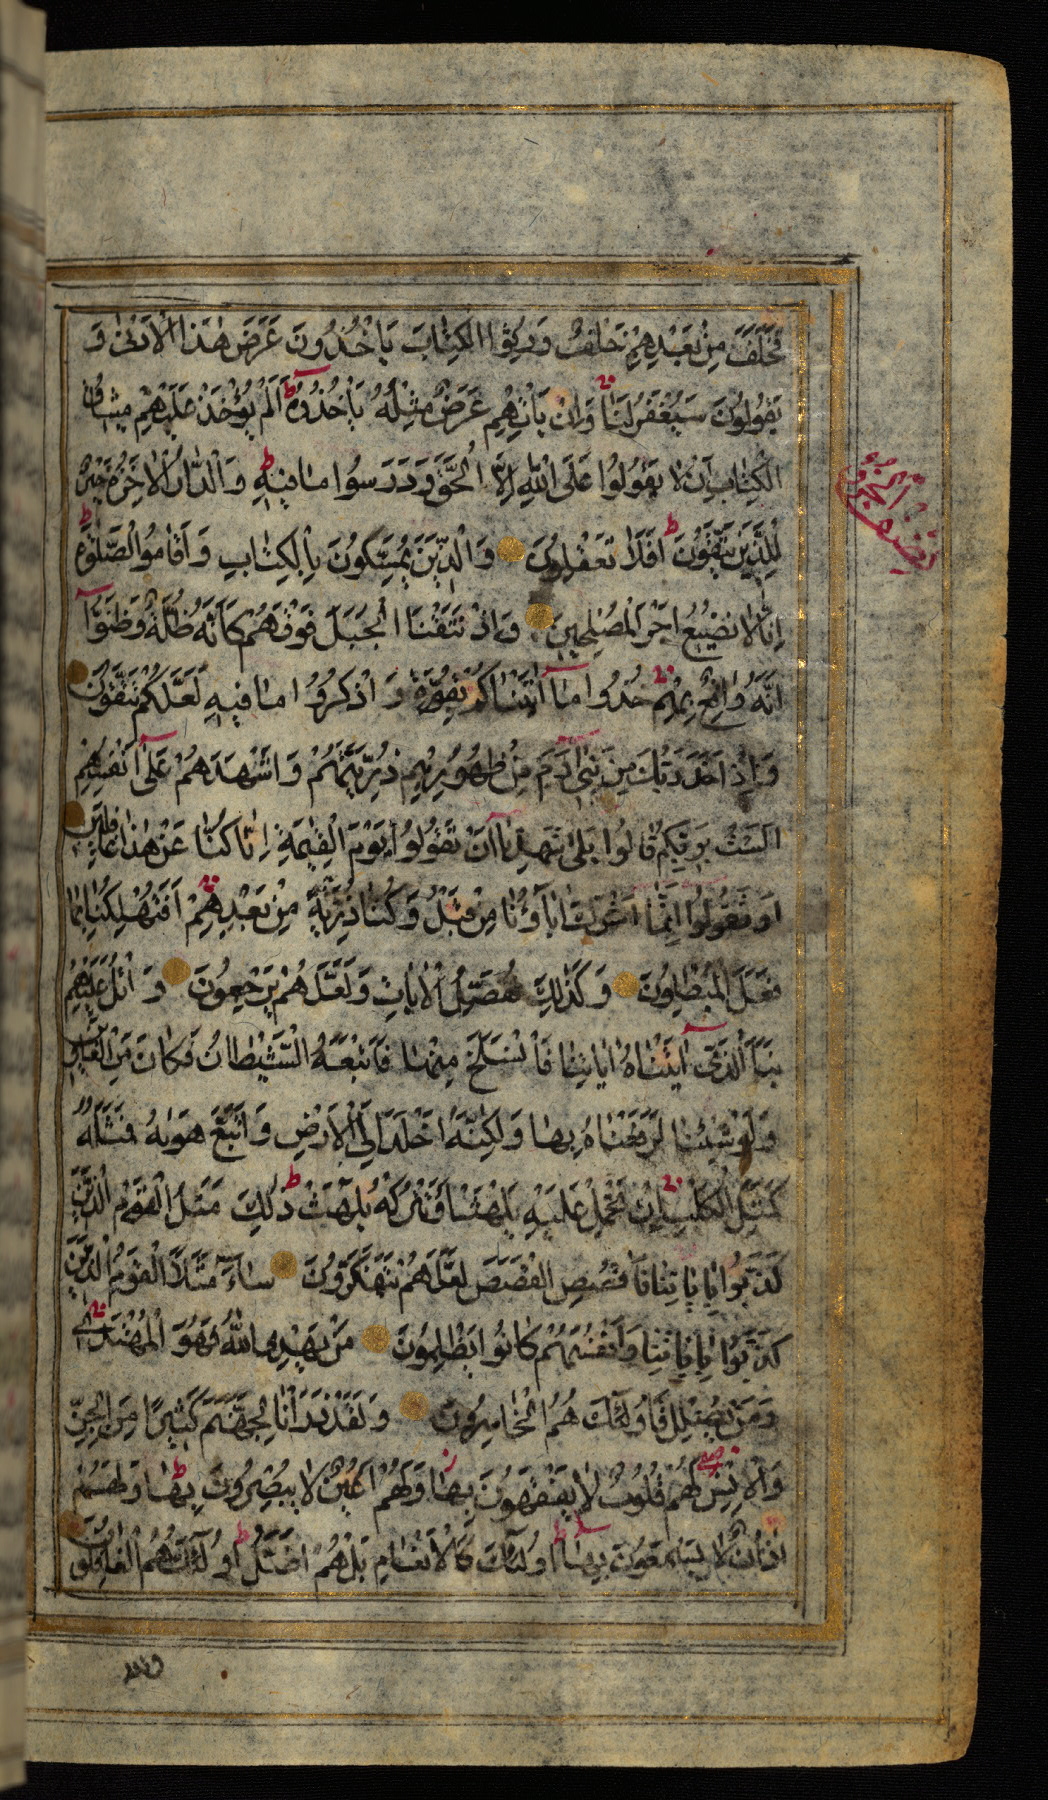 فَخَلَفَ مِنْ بَعْدِهِمْ خَلْفٌ وَرِثُوا الْكِتَابَ يَأْخُذُونَ عَرَضَ هٰذَا الْأَدْنٰى وَ
يَقُولُونَ سَيُغْفَرُ لَنَا وَاِنْ يَأْتِهِمْ عَرَضٌ مِثْلُهُ يَأْخُذُوهُ اَلَمْ يُؤْخَذْ عَلَيْهِمْ مِيثَاقُ
الْكِتَابِ اَنْ لَا يَقُولُوا عَلَى اللّٰهِ اِلَّا الْحَقَّ وَدَرَسُوا مَا فِيهِ وَالدَّارُ الْاٰخِرَةُ خَيْرٌ
لِلَّذِينَ يَتَّقُونَ اَفَلَا تَعْقِلُونَ وَالَّذِينَ يُمَسِّكُونَ بِالْكِتَابِ وَاَقَامُوا الصَّلٰوةَ
اِنَّا لَا نُضِيعُ اَجْرَ الْمُصْلِحِينَ وَاِذْ نَتَقْنَا الْجَبَلَ فَوْقَهُمْ كَاَنَّهُ ظُلَّةٌ وَظَنُّوا
اَنَّهُ وَاقِعٌ بِهِمْ خُذُوا مَا اٰتَيْنَاكُمْ بِقُوَّةٍ وَاذْكُرُوا مَا فِيهِ لَعَلَّكُمْ تَتَّقُونَ
وَاِذْ اَخَذَ رَبُّكَ مِنْ بَنِي اٰدَمَ مِنْ ظُهُورِهِمْ ذُرِّيَّتَهُمْ وَاَشْهَدَهُمْ عَلٰى اَنْفُسِهِمْ
اَلَسْتُ بِرَبِّكُمْ قَالُوا بَلٰى شَهِدْنَا اَنْ تَقُولُوا يَوْمَ الْقِيٰمَةِ اِنَّا كُنَّا عَنْ هٰذَا غَافِلِينَ
اَوْ تَقُولُوا اِنَّمَا اَشْرَكَ اٰبَاؤُنَا مِنْ قَبْلُ وَكُنَّا ذُرِّيَّةً مِنْ بَعْدِهِمْ اَفَتُهْلِكُنَا بِمَا
فَعَلَ الْمُبْطِلُونَ وَكَذٰلِكَ نُفَصِّلُ الْاٰيَاتِ وَلَعَلَّهُمْ يَرْجِعُونَ وَاتْلُ عَلَيْهِمْ
نَبَاَ الَّذِي اٰتَيْنَاهُ اٰيَاتِنَا فَانْسَلَخَ مِنْهَا فَاَتْبَعَهُ الشَّيْطَانُ فَكَانَ مِنَ الْغَاوِينَ
وَلَوْ شِئْنَا لَرَفَعْنَاهُ بِهَا وَلٰكِنَّهُ اَخْلَدَ اِلَى الْاَرْضِ وَاتَّبَعَ هَوٰيهُ فَمَثَلُهُ
كَمَثَلِ الْكَلْبِ اِنْ تَحْمِلْ عَلَيْهِ يَلْهَثْ اَوْ تَتْرُكْهُ يَلْهَثْ ذٰلِكَ مَثَلُ الْقَوْمِ الَّذِينَ
كَذَّبُوا بِاٰيَاتِنَا فَاقْصُصِ الْقَصَصَ لَعَلَّهُمْ يَتَفَكَّرُونَ سَاءَ مَثَلًا الْقَوْمُ الَّذِينَ
كَذَّبُوا بِاٰيَاتِنَا وَاَنْفُسَهُمْ كَانُوا يَظْلِمُونَ مَنْ يَهْدِي اللّٰهُ فَهُوَ الْمُهْتَدِي
وَمَنْ يُضْلِلْ فَاُولٰئِكَ هُمُ الْخَاسِرُونَ وَلَقَدْ ذَرَاْنَا لِجَهَنَّمَ كَثِيرًا مِنَ الْجِنِّ
وَالْاِنْسِ لَهُمْ قُلُوبٌ لَا يَفْقَهُونَ بِهَا وَلَهُمْ اَعْيُنٌ لَا يُبْصِرُونَ بِهَا وَلَهُمْ
اٰذَانٌ لَا يَسْمَعُونَ بِهَا اُولٰئِكَ كَالْاَنْعَامِ بَلْ هُمْ اَضَلُّ اُولٰئِكَ هُمُ الْغَافِلُونَ